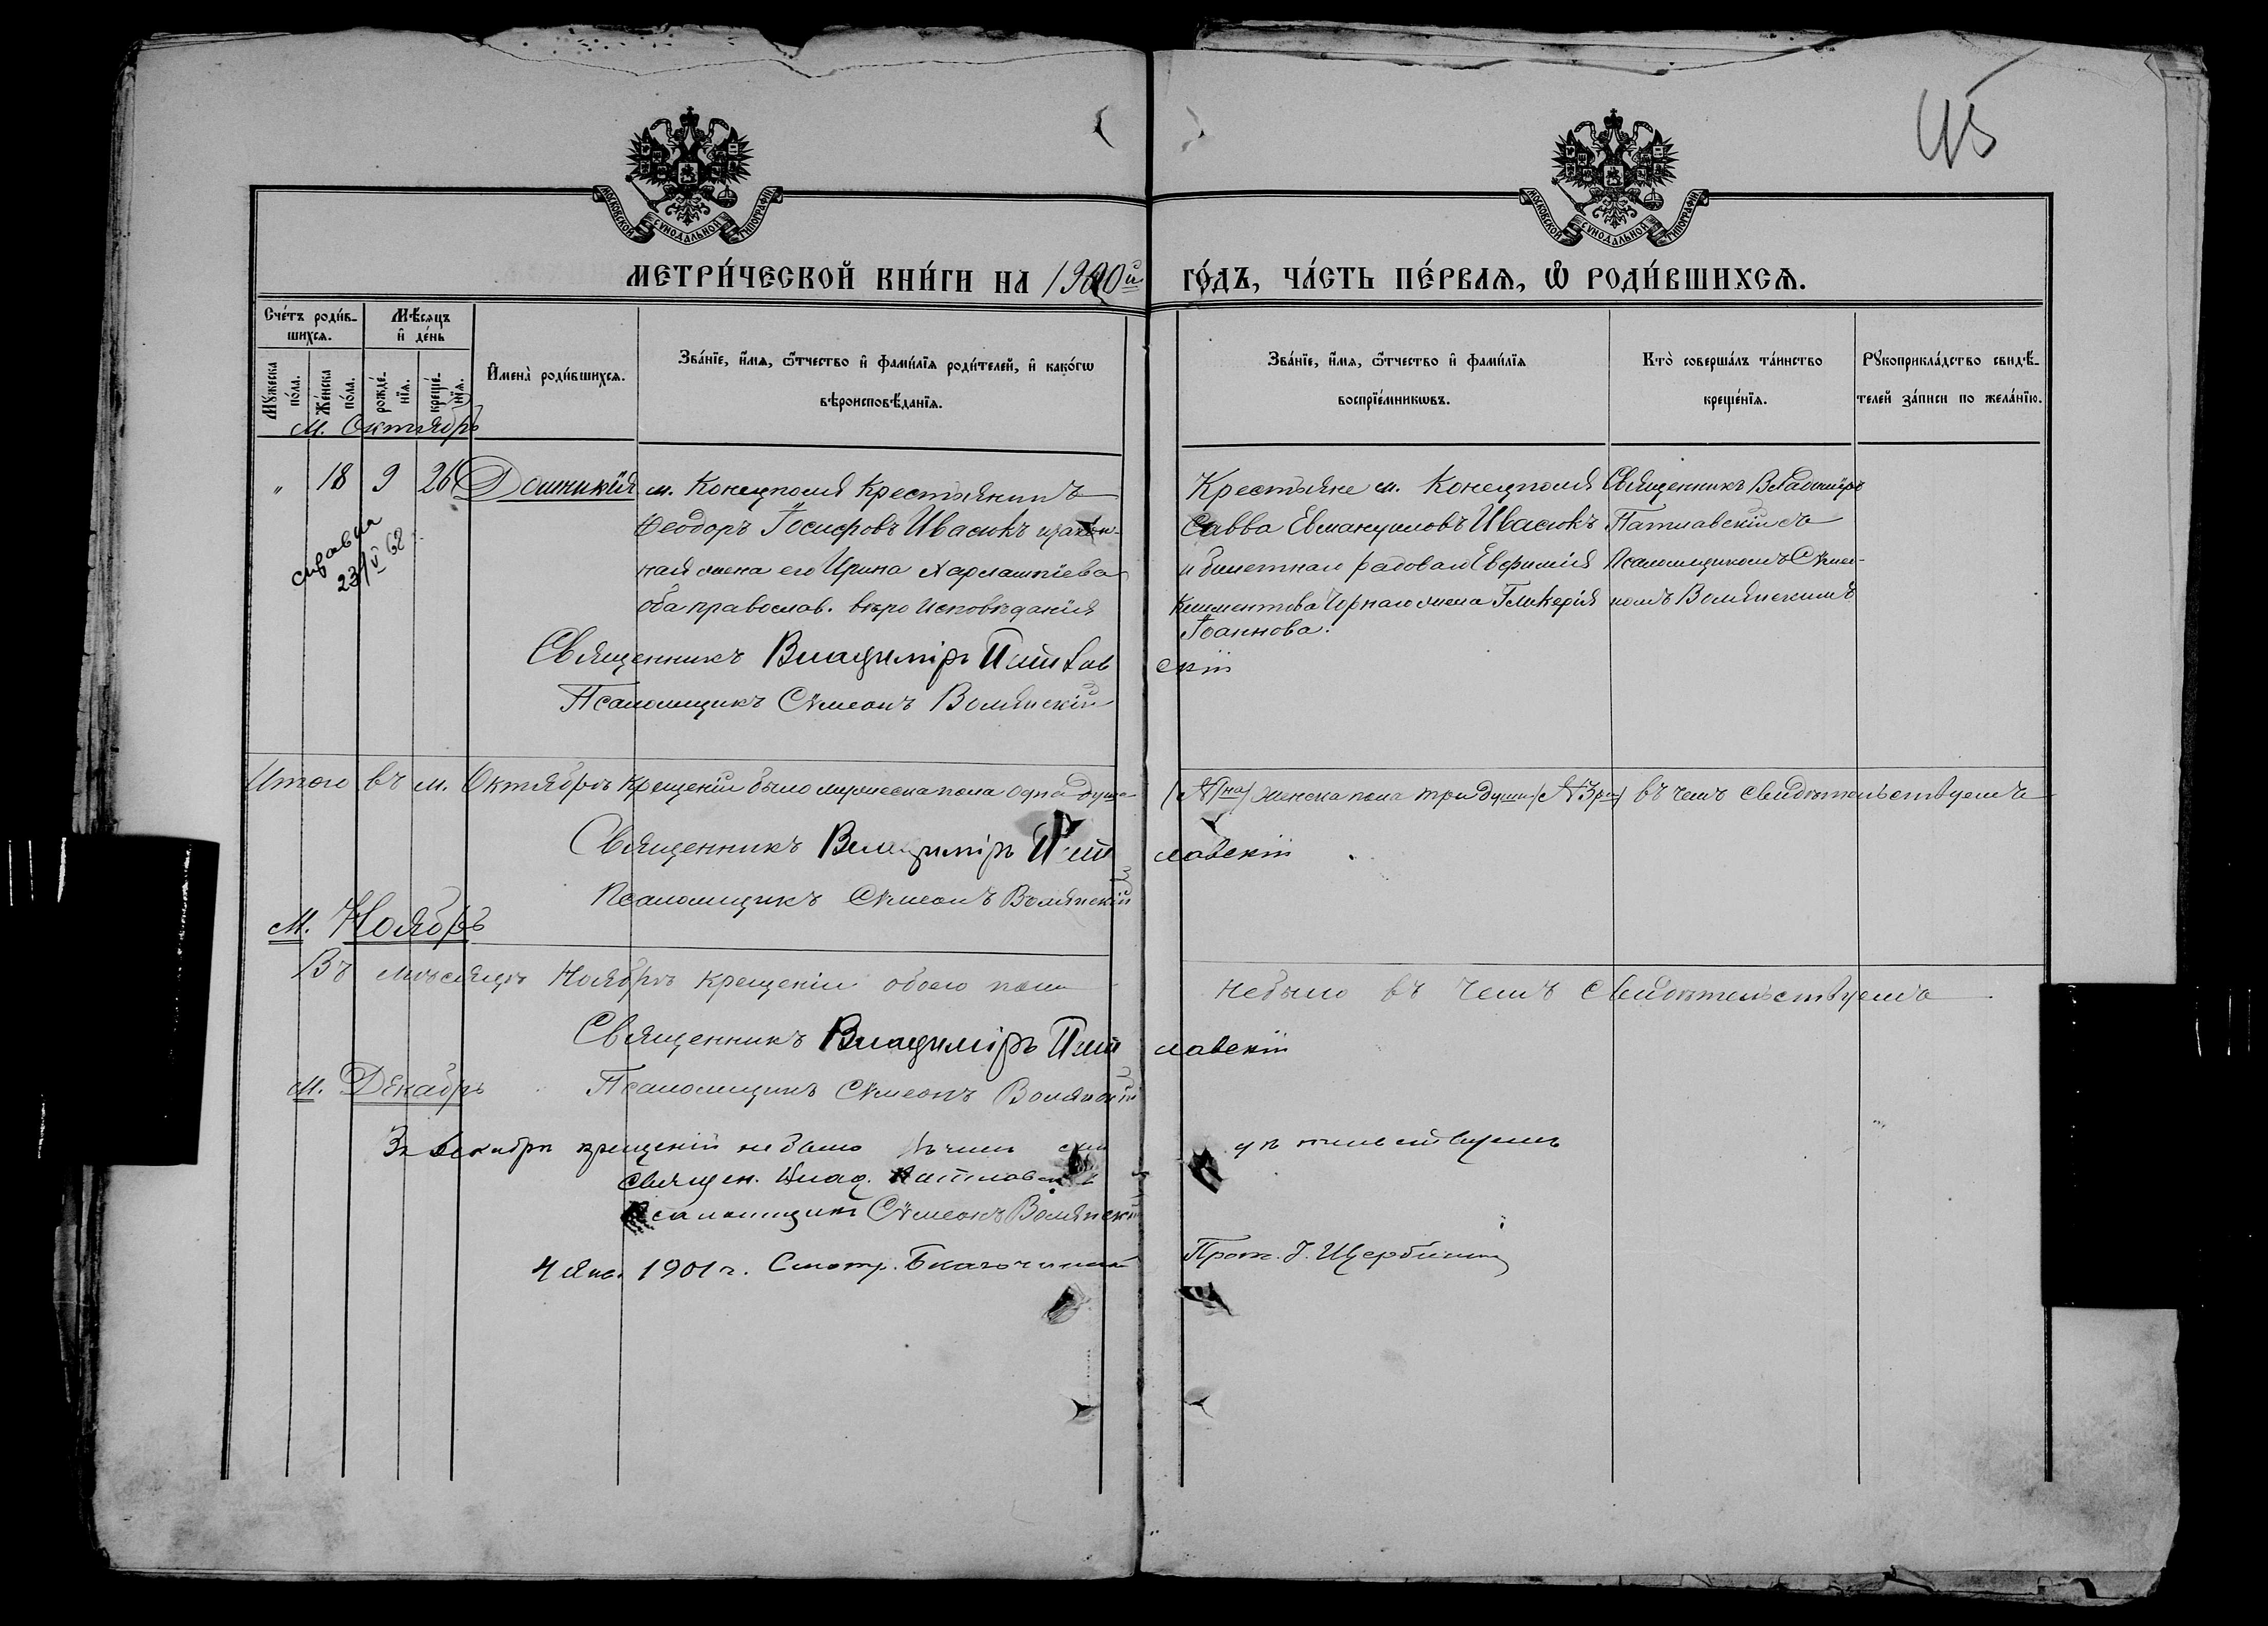 45
МОСКОВСКОЙ СУНОДАЛЬНОЙ ТИПОГРАФІИ
МОСКОВСКОЙ СУНОДАЛЬНОЙ ТИПОГРАФІИ
МЕТРИ́ЧЕСКОЙ КНИ́ГИ НА 1900й ГО́ДЪ, ЧА́СТЬ ПЕ́РВАЯ, Ѽ РОДИ́ВШИХСЯ.
Сче́тъ роди́в-
шихся.
Мѣ́сяцъ
и де́нь
Мꙋ́жеска
по́ла.
Же́нска
по́ла.
рожде́-
нїя.
креще́-
нїя.
Имена̀ роди́вшихся.
Зва́нїе, и́мя, ѻ́тчество и фами́лїя роди́телей, и како́гѡ
вѣроисповѣ́данїя.
Зва́нїе, и́мя, ѻ́тчество и фами́лїя
воспрїе́мникѡвъ.
Кто̀ соверша́лъ та́инство
креще́нїя.
Рꙋкоприкла́дство свидѣ́-
телей за́писи по жела́нїю.
м. Октябрь
" 18 9 26 Домникія
м. Конецполя Крестьянинъ
Ѳеодоръ Іосифовъ Ивасюкъ и закон-
ная жена его Ирина Харлампіева
оба православ. вѣроисповѣданія
Крестьяне м. Конецполя
Савва Евмануиловъ Ивасюкъ
и билетнаго рядоваго Евфимія
Климентова Чорнаго жена Гликерія
Іоаннова.
Священникъ Владиміръ
Патлавскій съ
Псаломщикомъ Сѵмео-
номъ Волянскимъ
справка
23/V 62
Священникъ Владиміръ Патлавскій
Псаломщикъ Сѵмеонъ Волянскій
Итого въ м. Октябрѣ крещеній было мужеска пола одна душа (№1на) женска пола три души (№3ри) въ чемъ свидѣтельствуемъ
Священникъ Владиміръ Патлавскій
Псаломщикъ Сѵмеонъ Волянскій
м. Ноябрь
Въ мѣсяцѣ Ноябрѣ крещеній обоего пола небыло въ чемъ свидѣтельствуемъ
Священникъ Владиміръ Патлавскій
м. Декабрь
Псаломщикъ Сѵмеонъ Волянскій
Въ декабрѣ крещеній не было въ чемъ свидѣтельствуемъ
Священ. Влад. Патлавскій
Псаломщикъ Сѵмеонъ Волянскій
4 Янв. 1901 г. Смотр. Благочинный Прот. І. Щербина